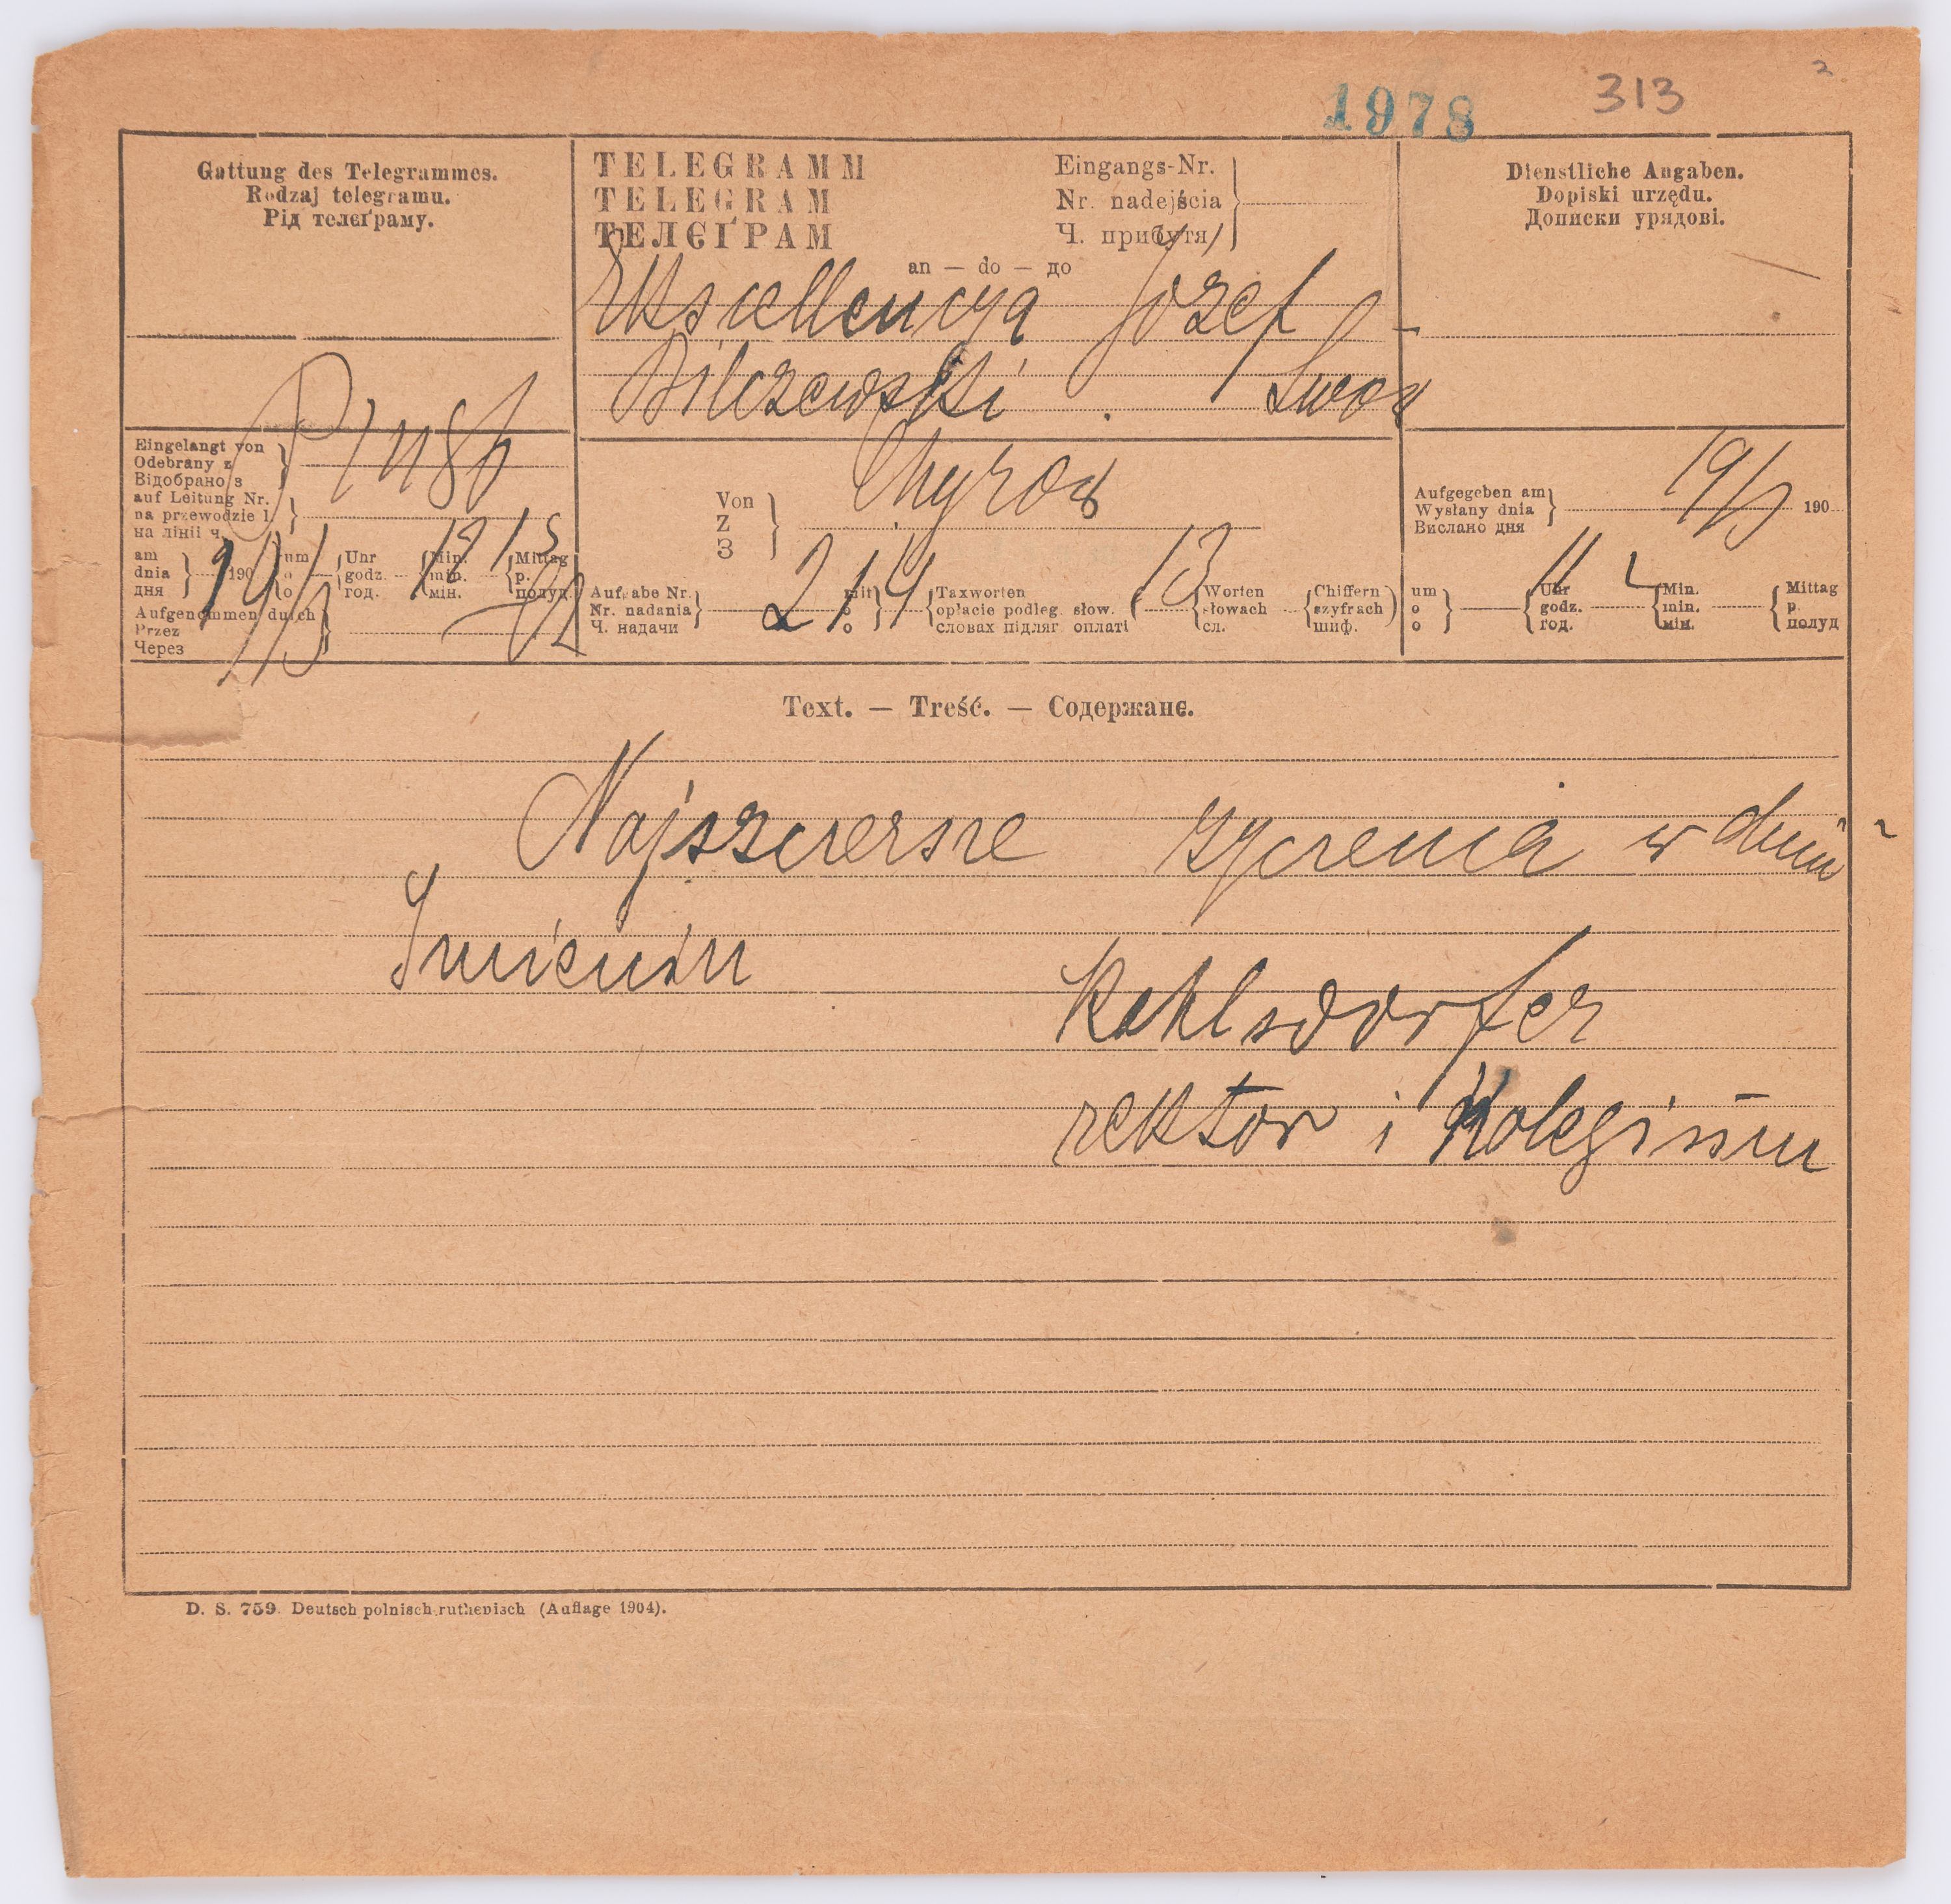 1978
313
2
Gattung des Telegrammes.
Rodzaj telegramu.
Рід телєґраму.
TELEGRAMM
TELEGRAM
ТЕЛЄҐРАМ
Eingangs-Nr.
Nr. nadejścia
Ч. прибутя
Dienstliche Angaben.
Dopiski urzędu.
Дописки урядові.
an — do — до
Ekscellencya Józef
Bilczewski . Lwow
Eingelangt von
Odebrany z
Відобрано з
auf Leitung Nr.
na przewodzie l.
на лінії ч.
am
dnia
дня
19/3
190
um
o
o
Uhr
godz.
год.
12
Min.
min.
мін.
15
Mittag
p.
полуд.
Aufgenommen durch
Przez
Через
Von
Z
З
Chyrow
Aufgabe Nr.
Nr. nadania
Ч. надачи
21
mit
o
o
14
Taxworten
opłacie podleg. słow.
словах підляг оплаті
13
Worten
słowach
сл.
Chiffern
szyfrach
шиф.
Aufgegeben am
Wysłany dnia
Вислано дня
19/3
190
um
o
o
11
Uhr
godz.
год.
Min.
min.
мін.
Mittag
p.
полуд
Text. — Treść. — Содержанє.
Najszczersze zyczenia w dniu
Imienin
Kahlsdorfer
rektor i Kolegium
D. S. 759. Deutsch polnisch ruthenisch (Auflage 1904).